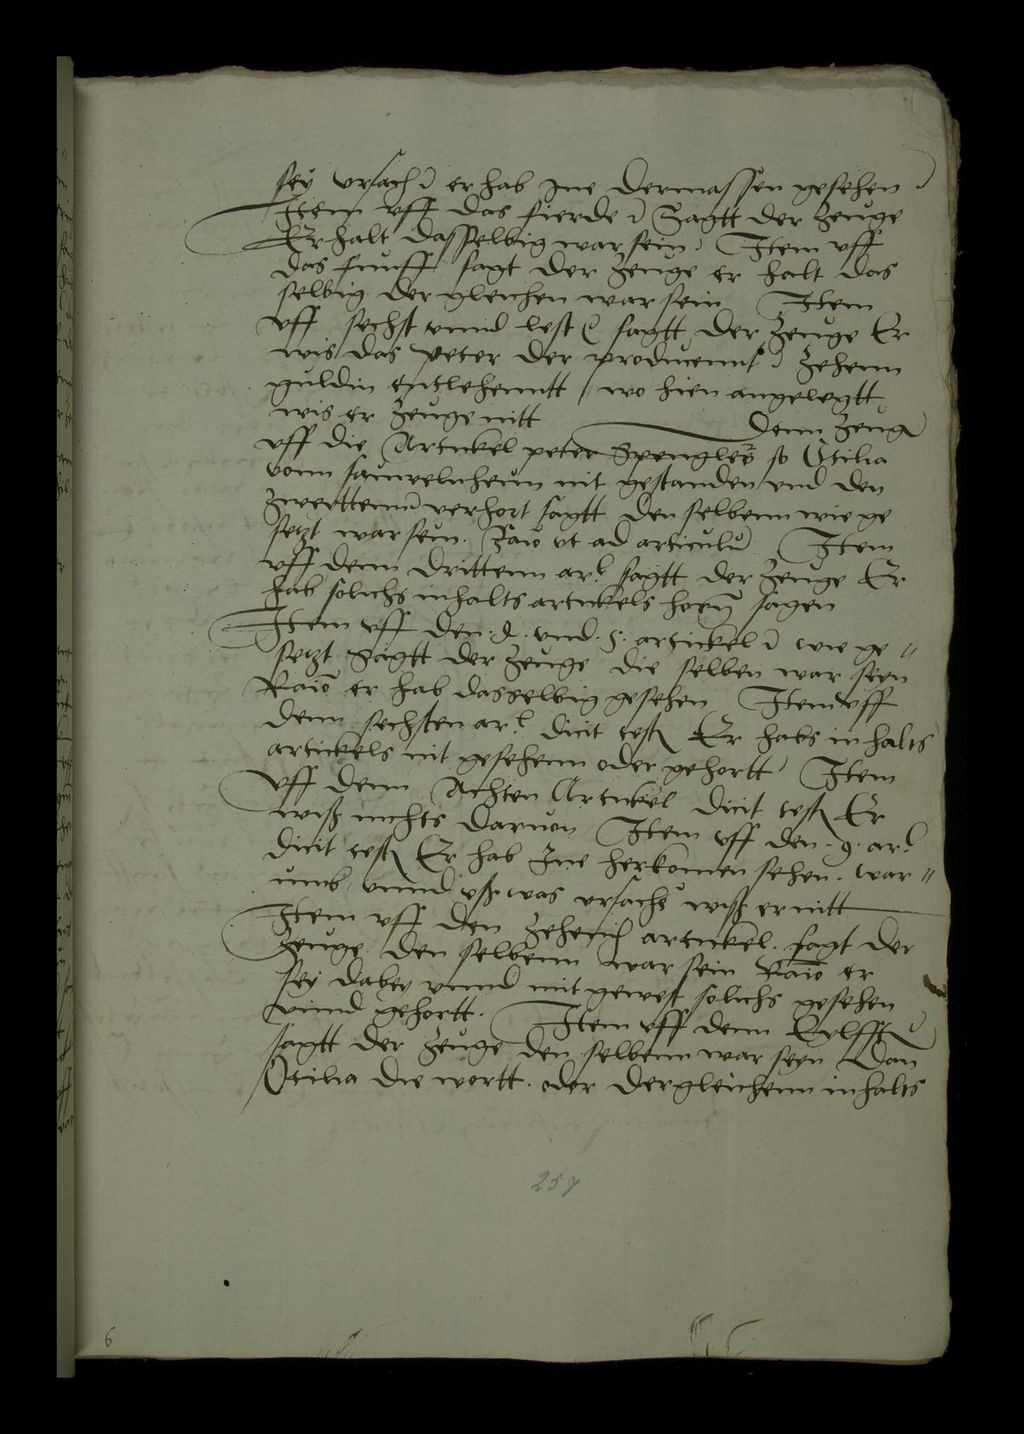 sey ursach er hab Jne dermassen gesehen
Item uff das fierde Sagtt der Zeuge
Er halt dasselbig war sein Item uff
das funfft sagt der Zeuge er halt das
selbig der gleichen war sein Item
uff sechst unnd lest sagtt der Zeuge Er
wis das Peter der producennt Zehenn
guldin entlehenntt / wo hien angelegtt
wis er Zeuge nitt denn Zeug
uff die Artickel peter Spenglers so Otilia
vonn saurvelnheim nit gestanden und den
Zwerttenn verhort sagtt den selbenn wie ge
setzt war sein. Raio ut ad articulu Item
uff denn drittenn ar. sagtt der Zeuge Er
hab solichs inhalts artickels horen sagen
Item uff den .4. und .5. artickel wie ge"
setzt Sagtt der Zeuge die selben war seyn
Raio er hab dasselbig gesehen Item uff
denn sechsten ar. dicit test Er habs inhalts
artickels nit gesehenn oder gehortt Item
Uff denn Achten Artickel dicit test Er
wiß nichts darvon Item uff den .9. ar.
dicit test Er hab Jne herkomen sehen. war"
umb unnd uß was ursachs wiß er nitt
Item uff den Zehend artickel. sagt der
Zeuge den selbenn war sein Raio er
sey dabey unnd mit gewest solichs gesehen
unnd gehortt. Item uff denn Eylfft
sagtt der Zeuge den selbenn war seyn Dan
Otilia die wortt. oder dergleichenn inhalts
257
6